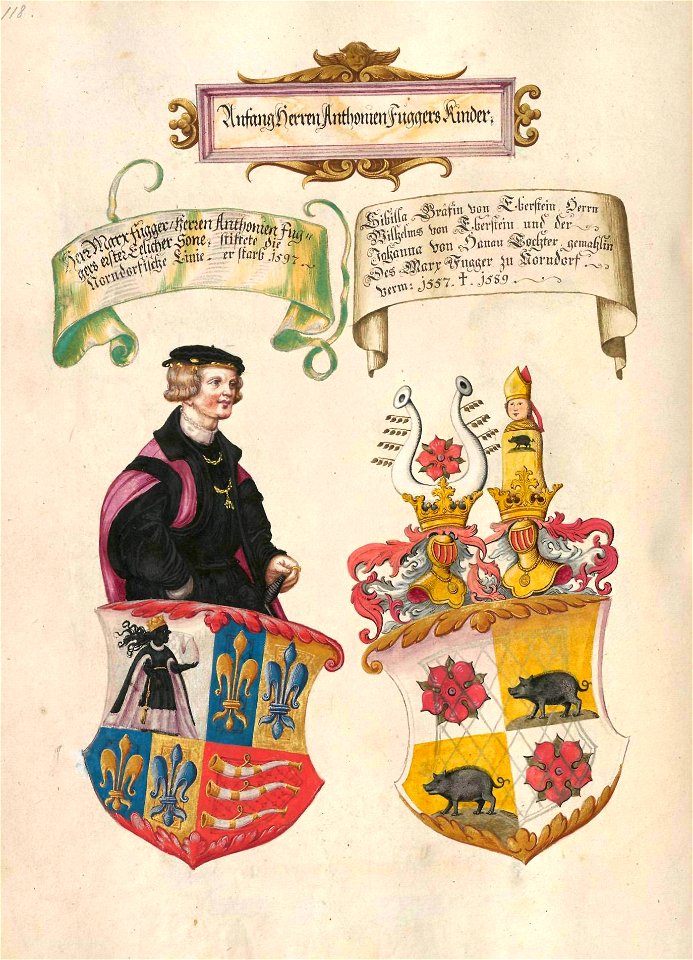 118.
Anfang Herren Anthonien Fuggers Kinder;
Her Marx Fugger, Herren Anthonien Fug=
gers erster Eelicher Sone, stifftete die
Norndorfische Linie. er starb 1597.
Sibilla Gräfin von Eberstein, Herrn
Wilhelms von Eberstein und der
Johanna von Hanau Tochter, gemahlin
Des Marx Fugger zu Norndorf.
verm: 1557. †. 1589.